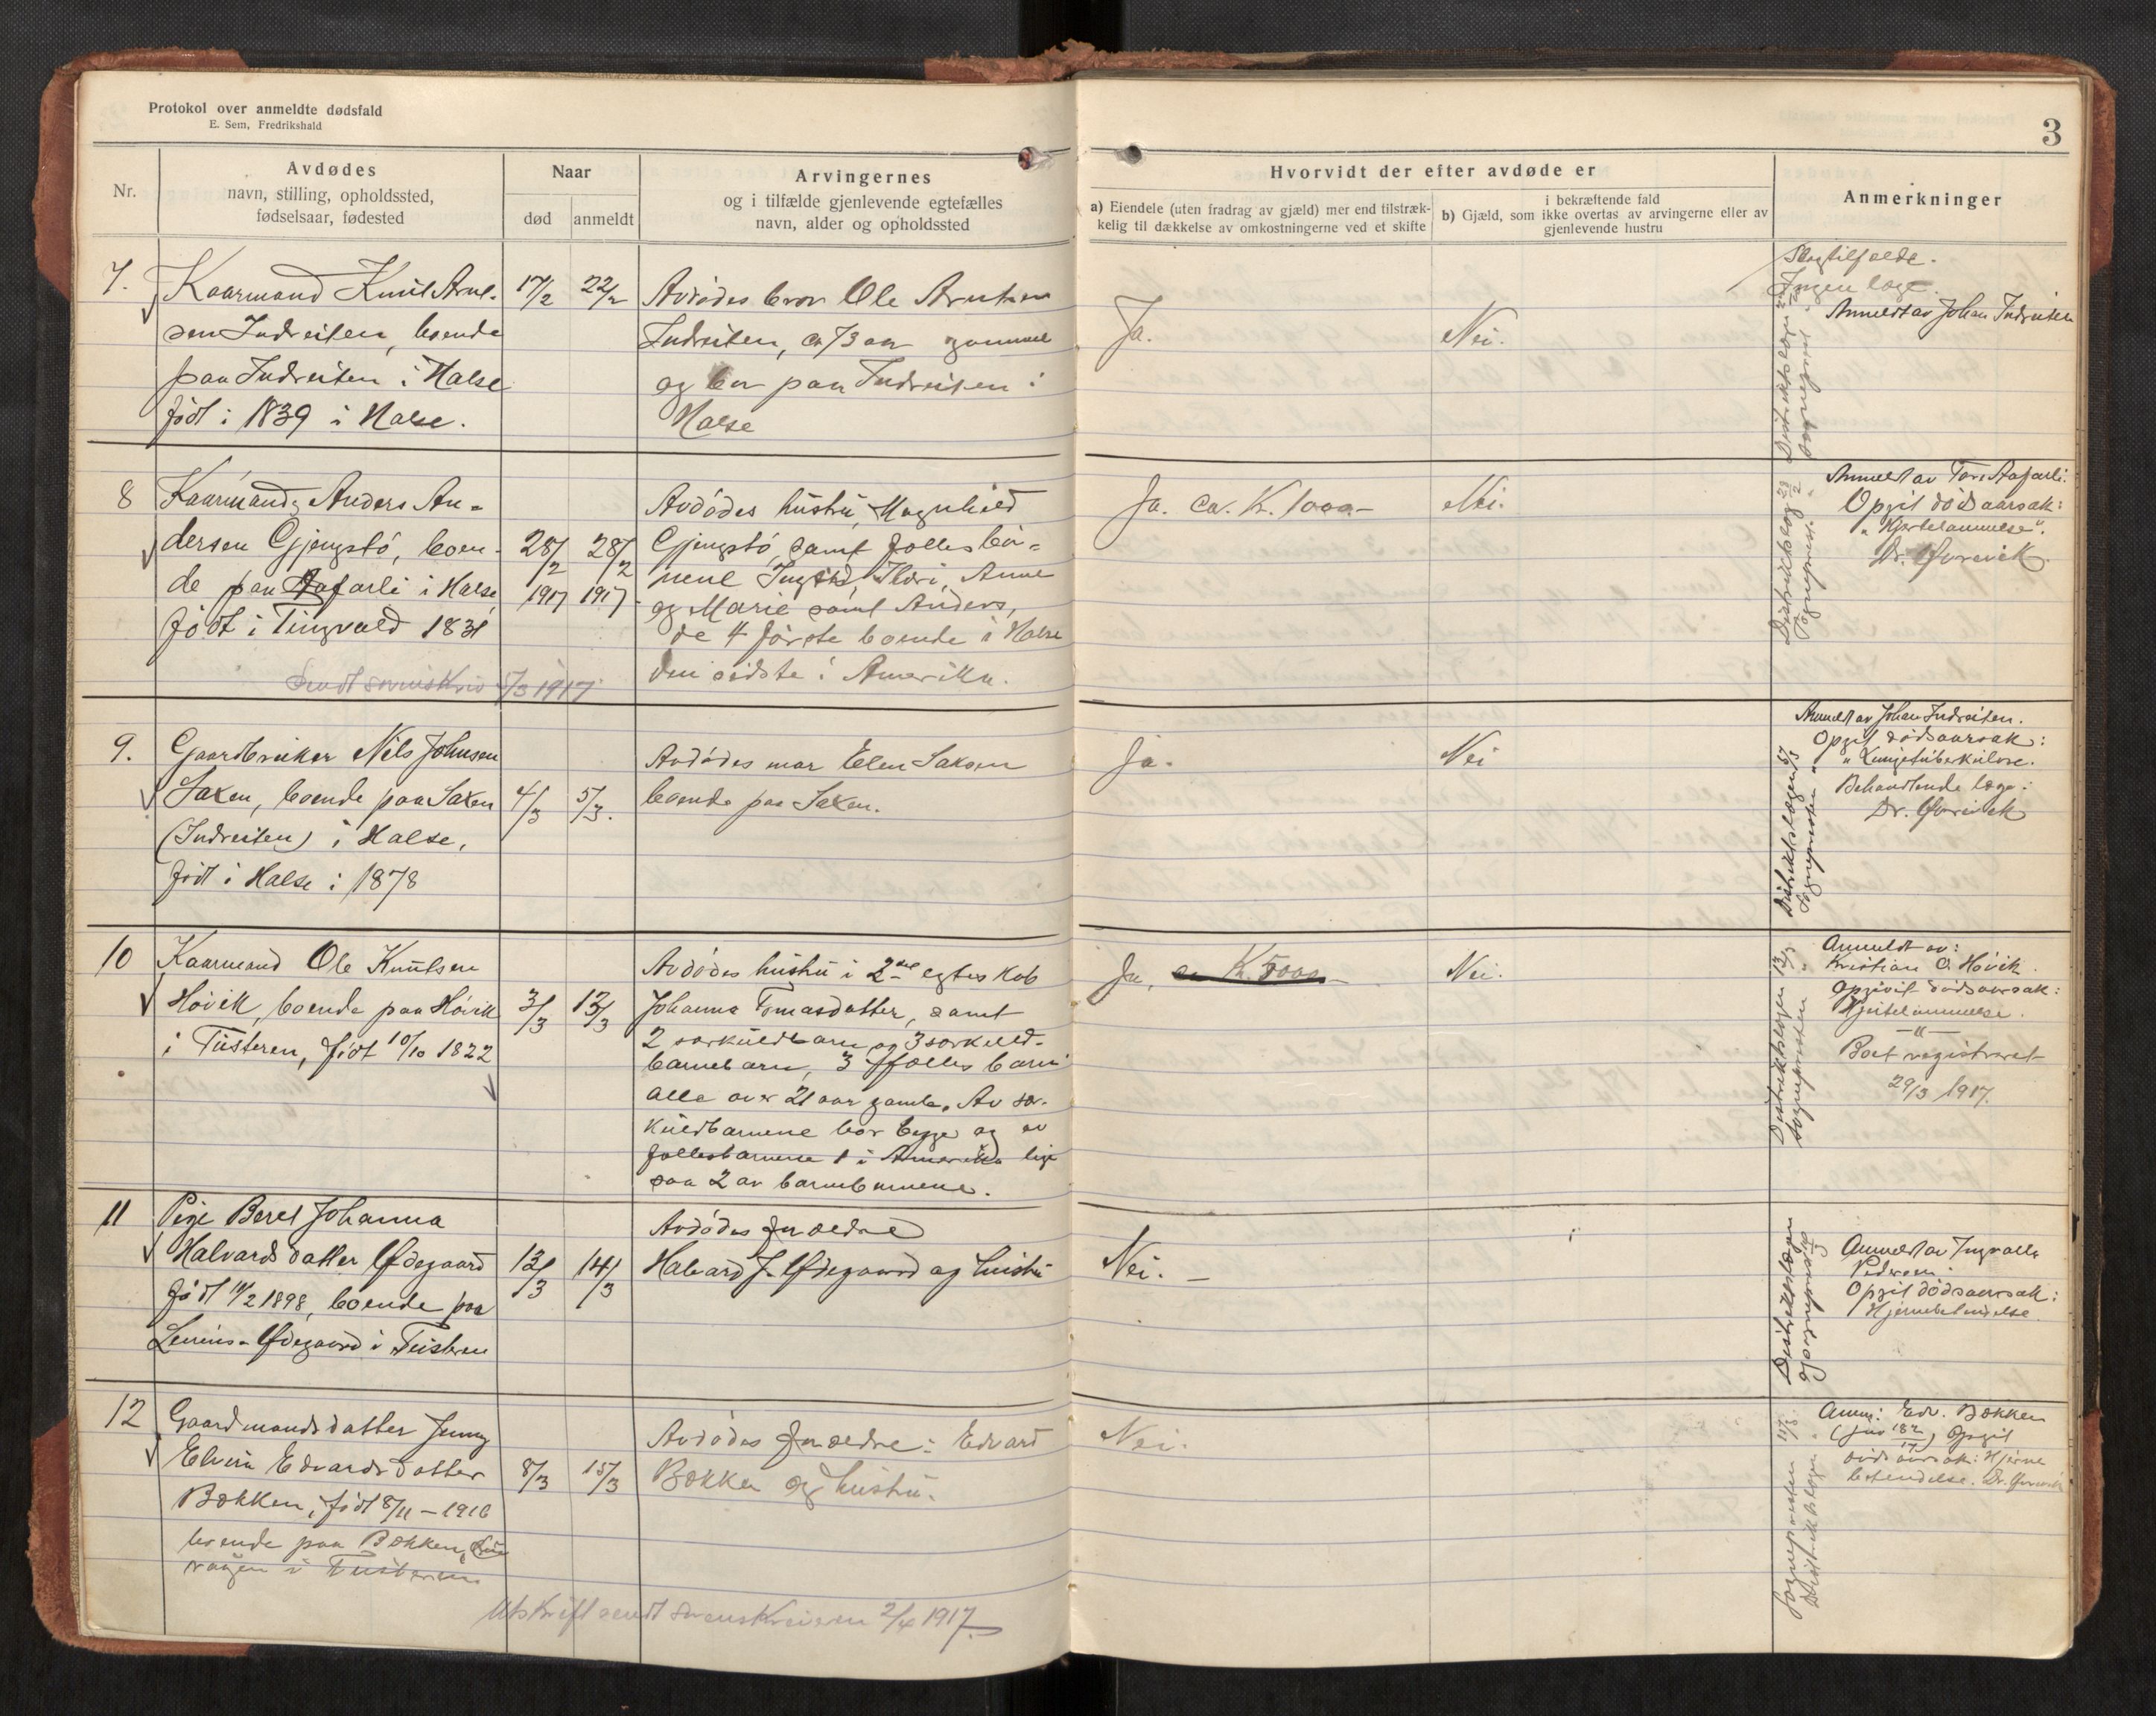 Protokol over anmeldte dødsfald
E. Sem, Fredrikshald
3
Nr.
Avdødes
navn, stilling, opholdssted,
fødselsaar, fødested
Naar
død
anmeldt
Arvingernes
og i tilfælde gjenlevende egtefælles
navn, alder og opholdssted
Hvorvidt der efter avdøde er
a) Eiendele (uten fradrag av gjæld) mer end tilstræk-
kelig til dækkelse av omkostningerne ved et skifte
i bekræftende fald
b) Gjæld, som ikke overtas av arvingerne eller av
gjenlevende hustru
Anmerkninger
7.
Kaarmand Knut Arnt-
sen Indreiten, boende
paa Indreiten i Halse
født i 1839 i Halse.
17/2
22/2
Avdødes bror Ole Arntsen
Indreiten, ca 73 aar gammel
og bor paa Indreiten i
Halse
Ja.
Nei.
Slagtilfælde.
Ingen læge.
Anmeldt av Johan Indreiten
8
Kaarmand Anders An-
dersen Gjengstø, boen-
de paa Aafarli i Halse
født i Tingvold 1831
28/2 1917
28/2 1917
Avdødes hustru, Magnhild
Gjengstø, samt fælles bør-
nene Ingrid, Anne
og Marie samt Anders,
de 4 første boende i Halse
den sidste i Amerika.
Sendt sorenskriv 5/3 1917
Ja. ca. K. 1000.-
Nei.
Anmeldt av Tore Aafarli.
Opgit dødsaarsak:
"Hjertelammelse".
Dr. Ørevik
9.
Gaardbruker Nils Johnsen
Saxen, boende paa Saxen
(Indreiten) i Halse,
født i Halse i 1878
4/3
5/3.
Avdødes mor Elen Saksen
boende paa Saxen.
Ja.
Nei
Anmeldt av Johan Indreiten.
Opgit dødsaarsak:
"Lungetuberkulose.
Behandlende læge:
Dr. Ørevik
Distriktslægen 5/3
Sognepresten "
10
Kaarmand Ole Knutsen
Høvik, boende paa Høvik
i Tusteren, født 10/10 1822
3/3
13/3
Avdødes hustru i 2det egteskab
Johanna Tomasdatter, samt
2 særkuldbarn og 3 særkuld-
barnebarn, 3 fælles barn
alle over 21 aar gamle. Av sær-
kuldbarnene bor begge og av
fællesbarnene 1 i Amerika lige
saa 2 av barnebarnene.
Ja, ca K. 5000-
Nei.
Anmeldt av:
Kristian O. Høvik.
Opgivit dødsaarsak:
Hjertelammelse.
-"-
Boet registreret
29/3 1917.
Distriktslægen 13/3
Sognepresten "
11
Pige Beret Johanna
Halvardsdatter Ødegaard
født 14/2 1898, boende paa
Ødegaard i Tusteren
12/3
14/3
Avdødes forældre
Halvard J. Ødegaard og hustru
Nei. -
Anmeldt av Ingvalla
Pedersen.
Opgit dødsaarsak:
Hjernebetendelse.
Distriktslægen
Sogneprest
12
Gaardmandsdatter Jenny
Elvira Edvardsdatter
Bækken, født 8/11 - 1916
boende paa Bækken,
vaagen i Tusteren
8/3
15/3
Avdødes forældre: Edvard
Bækken og hustru.
Nei.
Anm: Edv. Bækken
Opgit
dødsaarsak: Hjerne
betendelse. Dr. Ørevik
Sognepresten
Distriktslægen
Utskrift sendt sorenskriveren 2/4 1917.